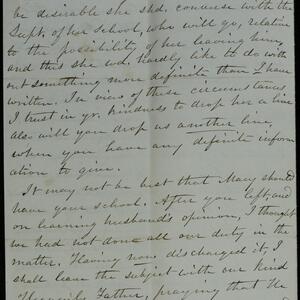 be desirable she shd, converse with the
Supt. of her school, who will go, relative
to the possibility of her leaving him,
and this she wd, hardly like to do with
out something more definite than I have
written. In view of these circumstances
I trust in yr. kindness to drop her a line
also will you drop us another line,
when you have any definite inform
ation to give.
It may not be best that Mary should
have your school. After you left, and
on learning husband's opinion, I thought
we had not done all our duty in the
matter. Having now discharged it, I
shall leave the subject with our kind
Heavenly Father, praying that He